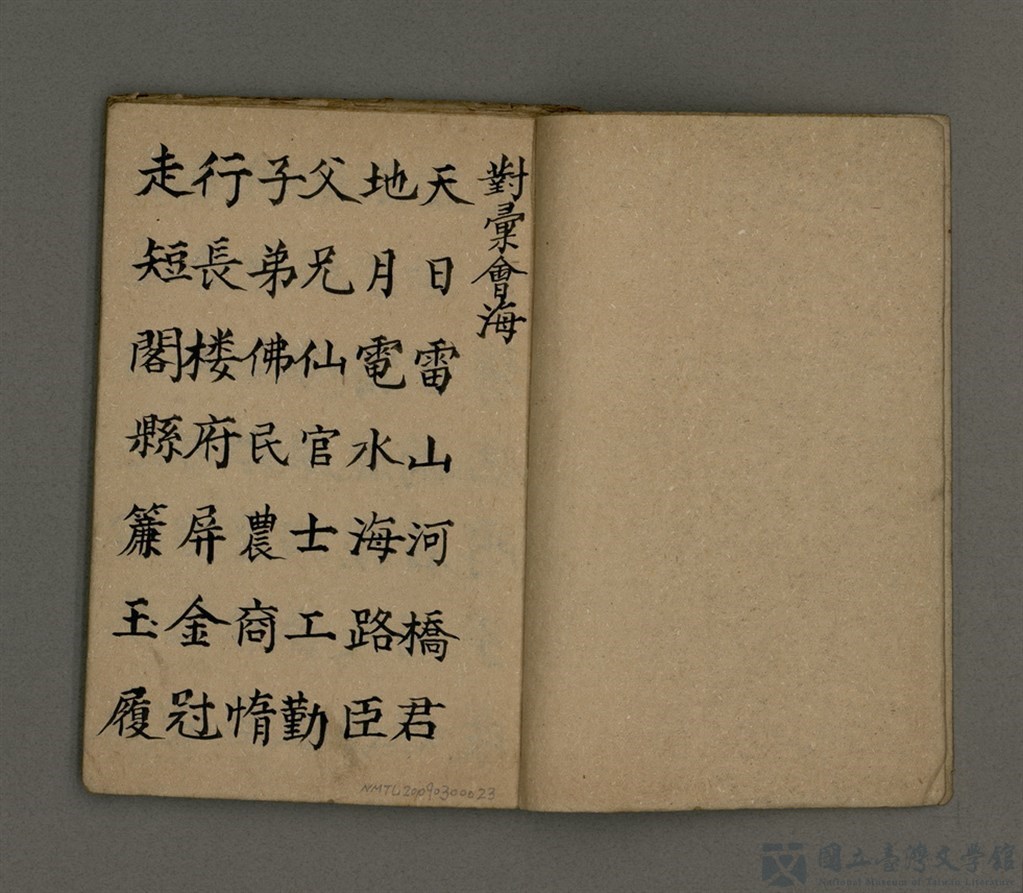 對彙會海
天日雷山河橋君
地月電水海路臣
父兄仙官士工勤
子弟佛民農商惰
行長楼府屏金冠
走短閣縣簾玉履
NMTL20090300023
國立臺灣文学館
National Museum of Taiwan Literature